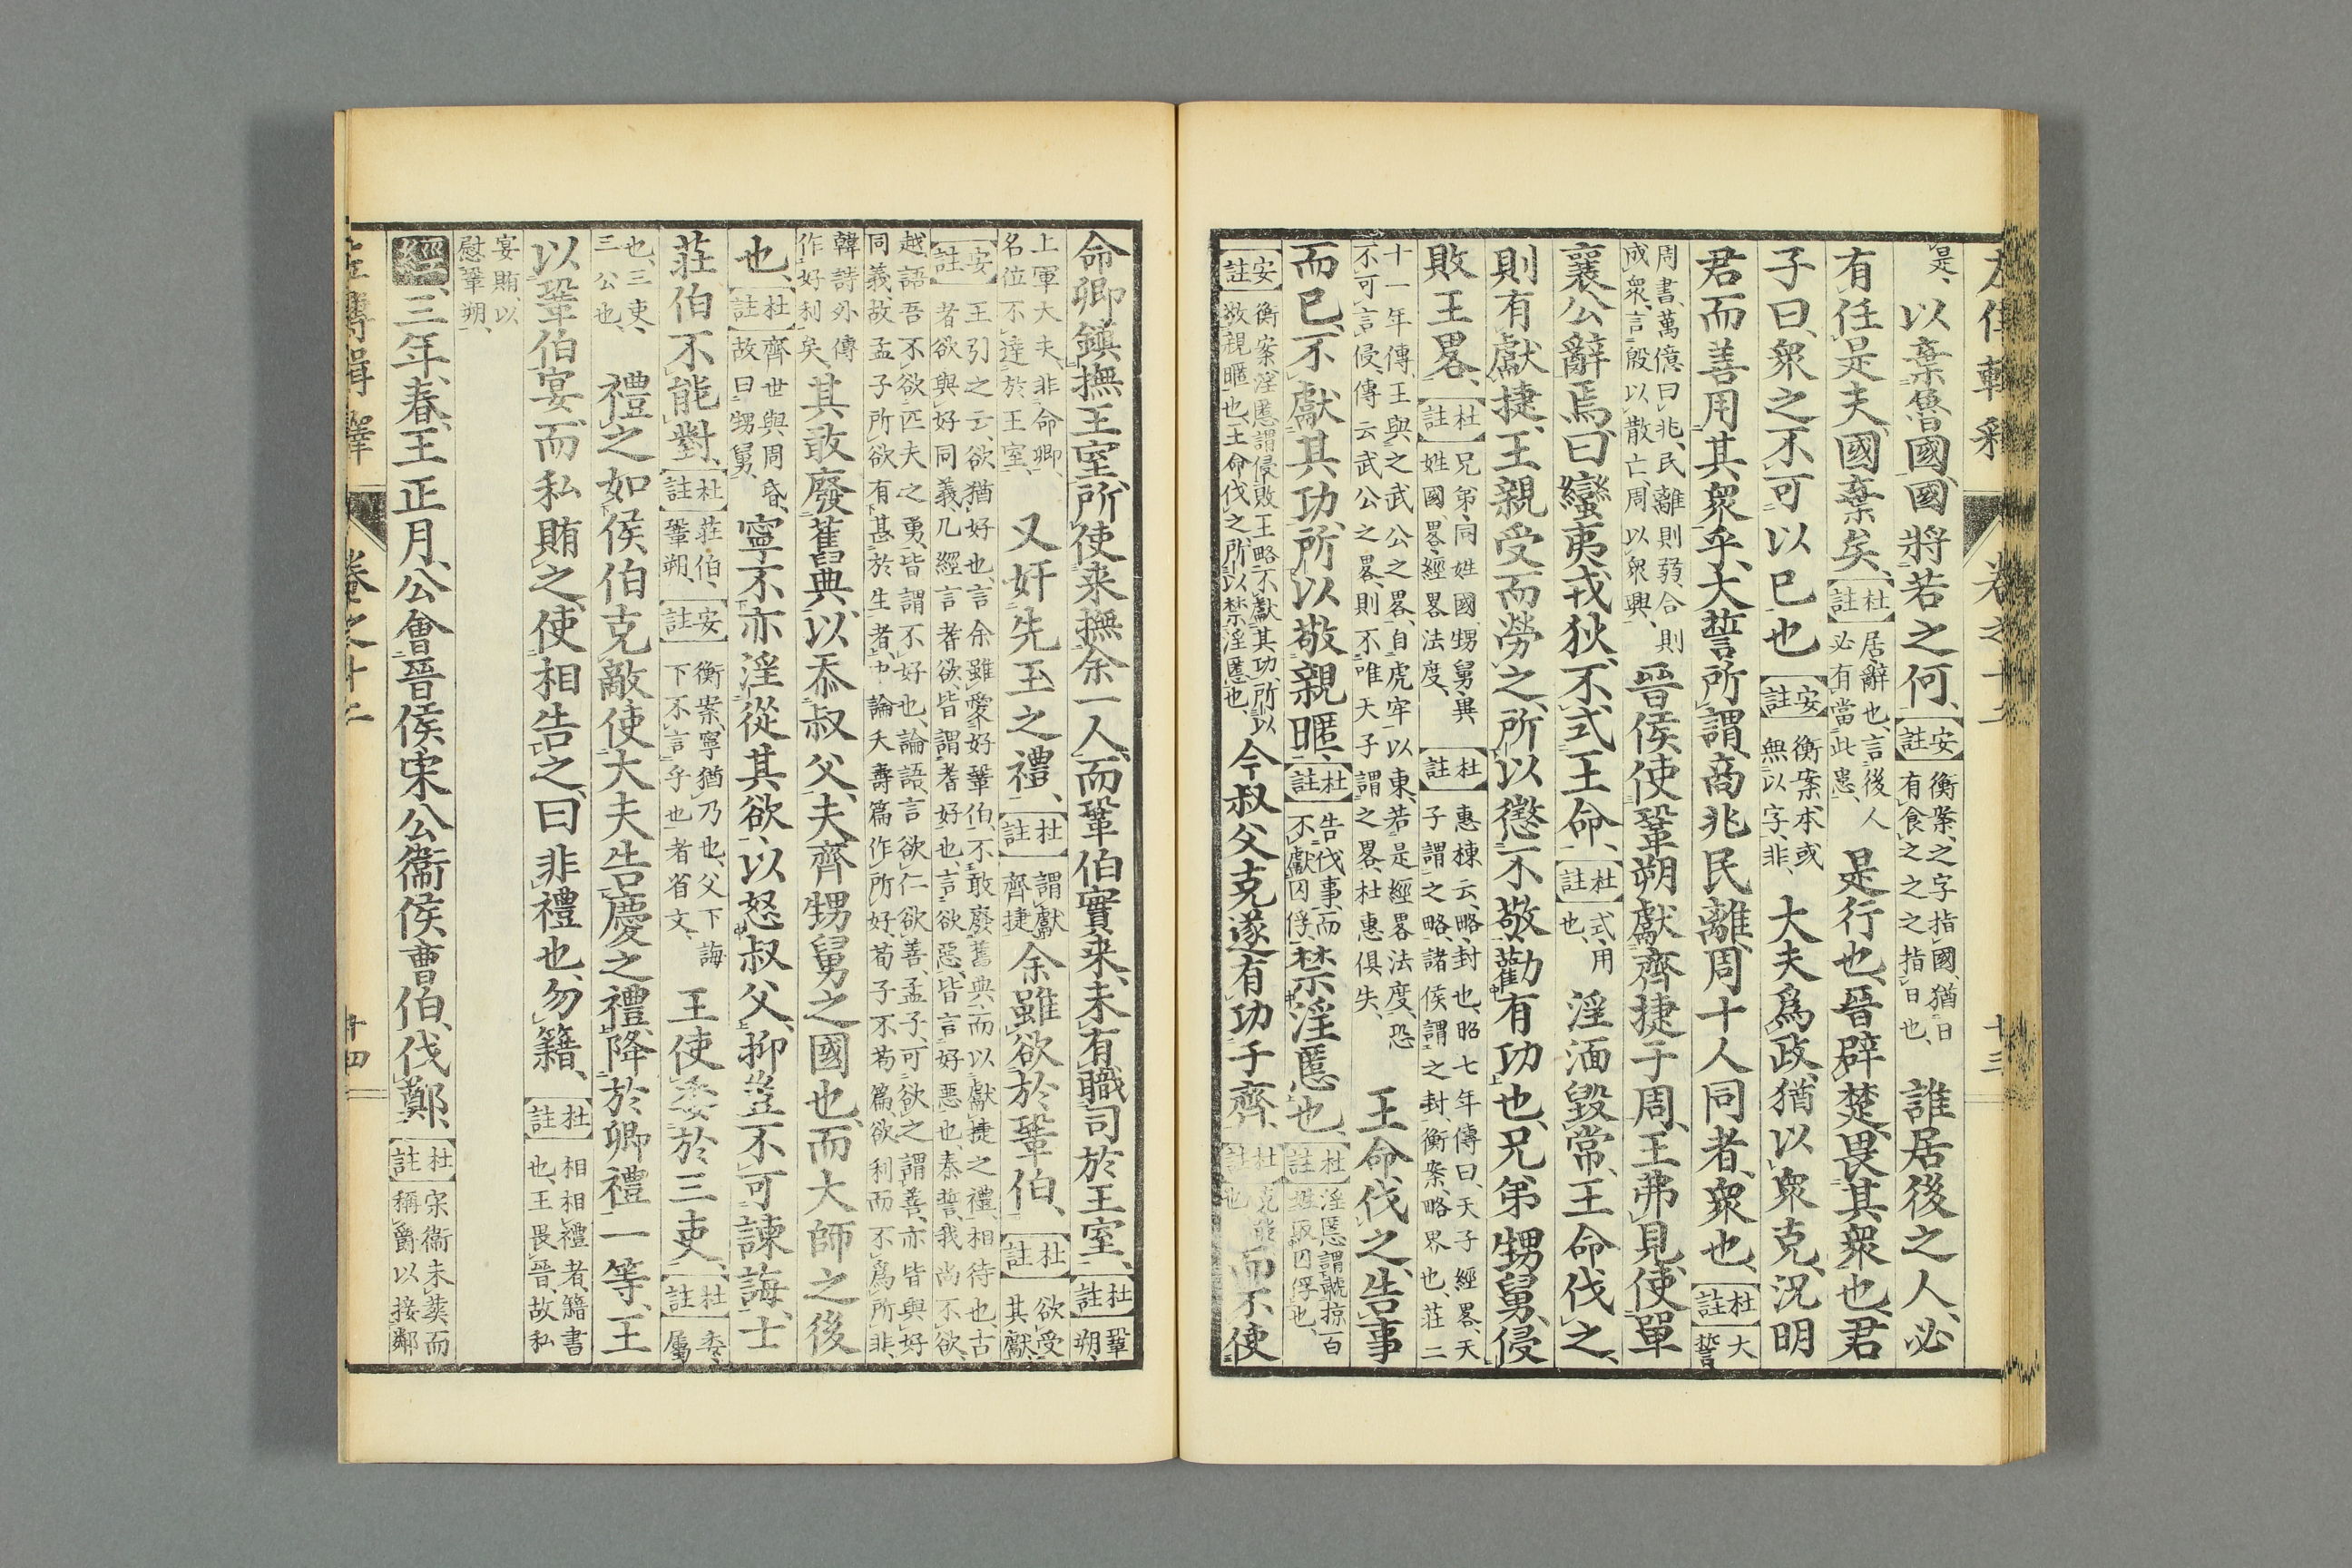 左傳輯釋 卷之十二 十三
是、以棄魯國、國將若之何、【安註】衡案、之字指國、猶曰有食之之之指日也、誰居後之人、必
有任是夫、國棄矣、【杜註】居、辭也、言後人必有當此患、是行也、晉辟楚、畏其衆也、君
子曰、衆之不可以已也、【安註】衡案本或無以字、非、大夫爲政、猶以衆克、況明
君而善用其衆乎、大誓所謂商兆民離、周十人同者、衆也、【杜註】大誓
周書、萬億曰兆、民離則弱、合則成衆、言殷以散亡、周以衆興、晉侯使鞏朔獻齊捷于周、王弗見、使單
襄公辭焉、曰、蠻夷戎狄、不式王命、【杜註】式、用也、淫湎毀常、王命伐之、
則有獻捷、王親受而勞之、所以懲不敬、勸有功也、兄弟甥舅、侵
敗王畧、【杜註】兄弟、同姓國、甥舅、異姓國、畧、經畧法度、【杜註】惠棟云、略、封也、昭七年傳曰、天子經畧、天子謂之略、諸侯謂之封、衡案、略界也、莊二
十一年傳、王與之武公之畧、自虎牢以東、若是經畧法度、恐不可言侵、傳云武公之畧、則不唯天子謂之畧、杜惠俱失、王命伐之、告事
而已、不獻其功、所以敬親暱、【杜註】告伐事、而不獻囚俘、禁淫慝也、【杜註】淫慝、謂虢掠百姓、取囚俘也、
【安註】衡案、淫慝謂侵敗王略、不獻其功、所以敬親暱也、王命伐之、所以禁淫慝也、今叔父克遂有功于齊、【杜註】克、能也、而不使
命卿鎮撫王室、所使來撫余一人、而鞏伯實來、未有職司於王室、【杜註】鞏朔、
上軍大夫、非命卿、名位不達於王室、又奸先王之禮、【杜註】謂獻齊捷、余雖欲於鞏伯、【杜註】欲受其獻、
【安註】王引之云、欲猶好也、言余雖愛好鞏伯、不敢廢舊典、而以獻捷之禮、相待也、古者欲與好同義、凡經言耆欲、皆謂耆好也、言欲惡、皆言好惡也、秦誓、我尚不欲、
越語吾不欲匹夫之勇、皆謂不好也、論語言欲仁欲善、孟子、可欲之謂善、亦皆與好同義、故孟子所欲有甚於生者、中論夭壽篇作所好、荀子不苟篇、欲利而不爲所非、
韓詩外傳作好利矣、其敢廢舊典、以忝叔父、夫齊甥舅之國也、而大師之後
也、【杜註】齊世與周昏、故曰甥舅、寧不亦淫從其欲、以怒叔父、抑豈不可諫誨、士
莊伯不能對、【杜註】莊伯、鞏朔、【安註】衡案、寧猶乃也、父下誨下不言乎也者省文、王使委於三吏、【杜註】委、屬
也、三吏、三公也、禮之如侯伯克敵使大夫告慶之禮、降於卿禮一等、王
以鞏伯宴、而私賄之、使相告之、曰、非禮也、勿籍、【杜註】相、相禮者、籍書也、王畏晉、故私
宴賄、以慰鞏朔、
經、三年、春、王正月、公會晉侯宋公衞侯曹伯、伐鄭、【杜註】宋衞未葬而稱爵以接鄰
左傳輯釋 卷之十二 十四